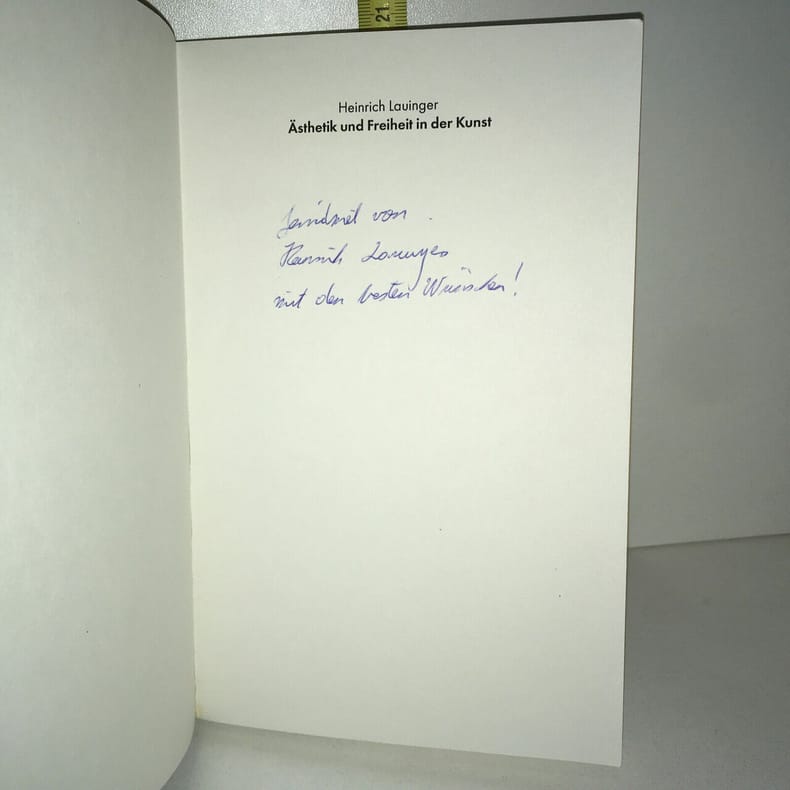 21
Heinrich Lauinger
Ästhetik und Freiheit in der Kunst
von
Heinrich Lauinger
mit den besten Wünschen!